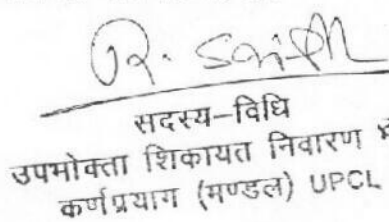 सदस्य–विधि
उपभोक्ता शिकायत निवारण
कर्णप्रयाग (मण्डल) UPCL